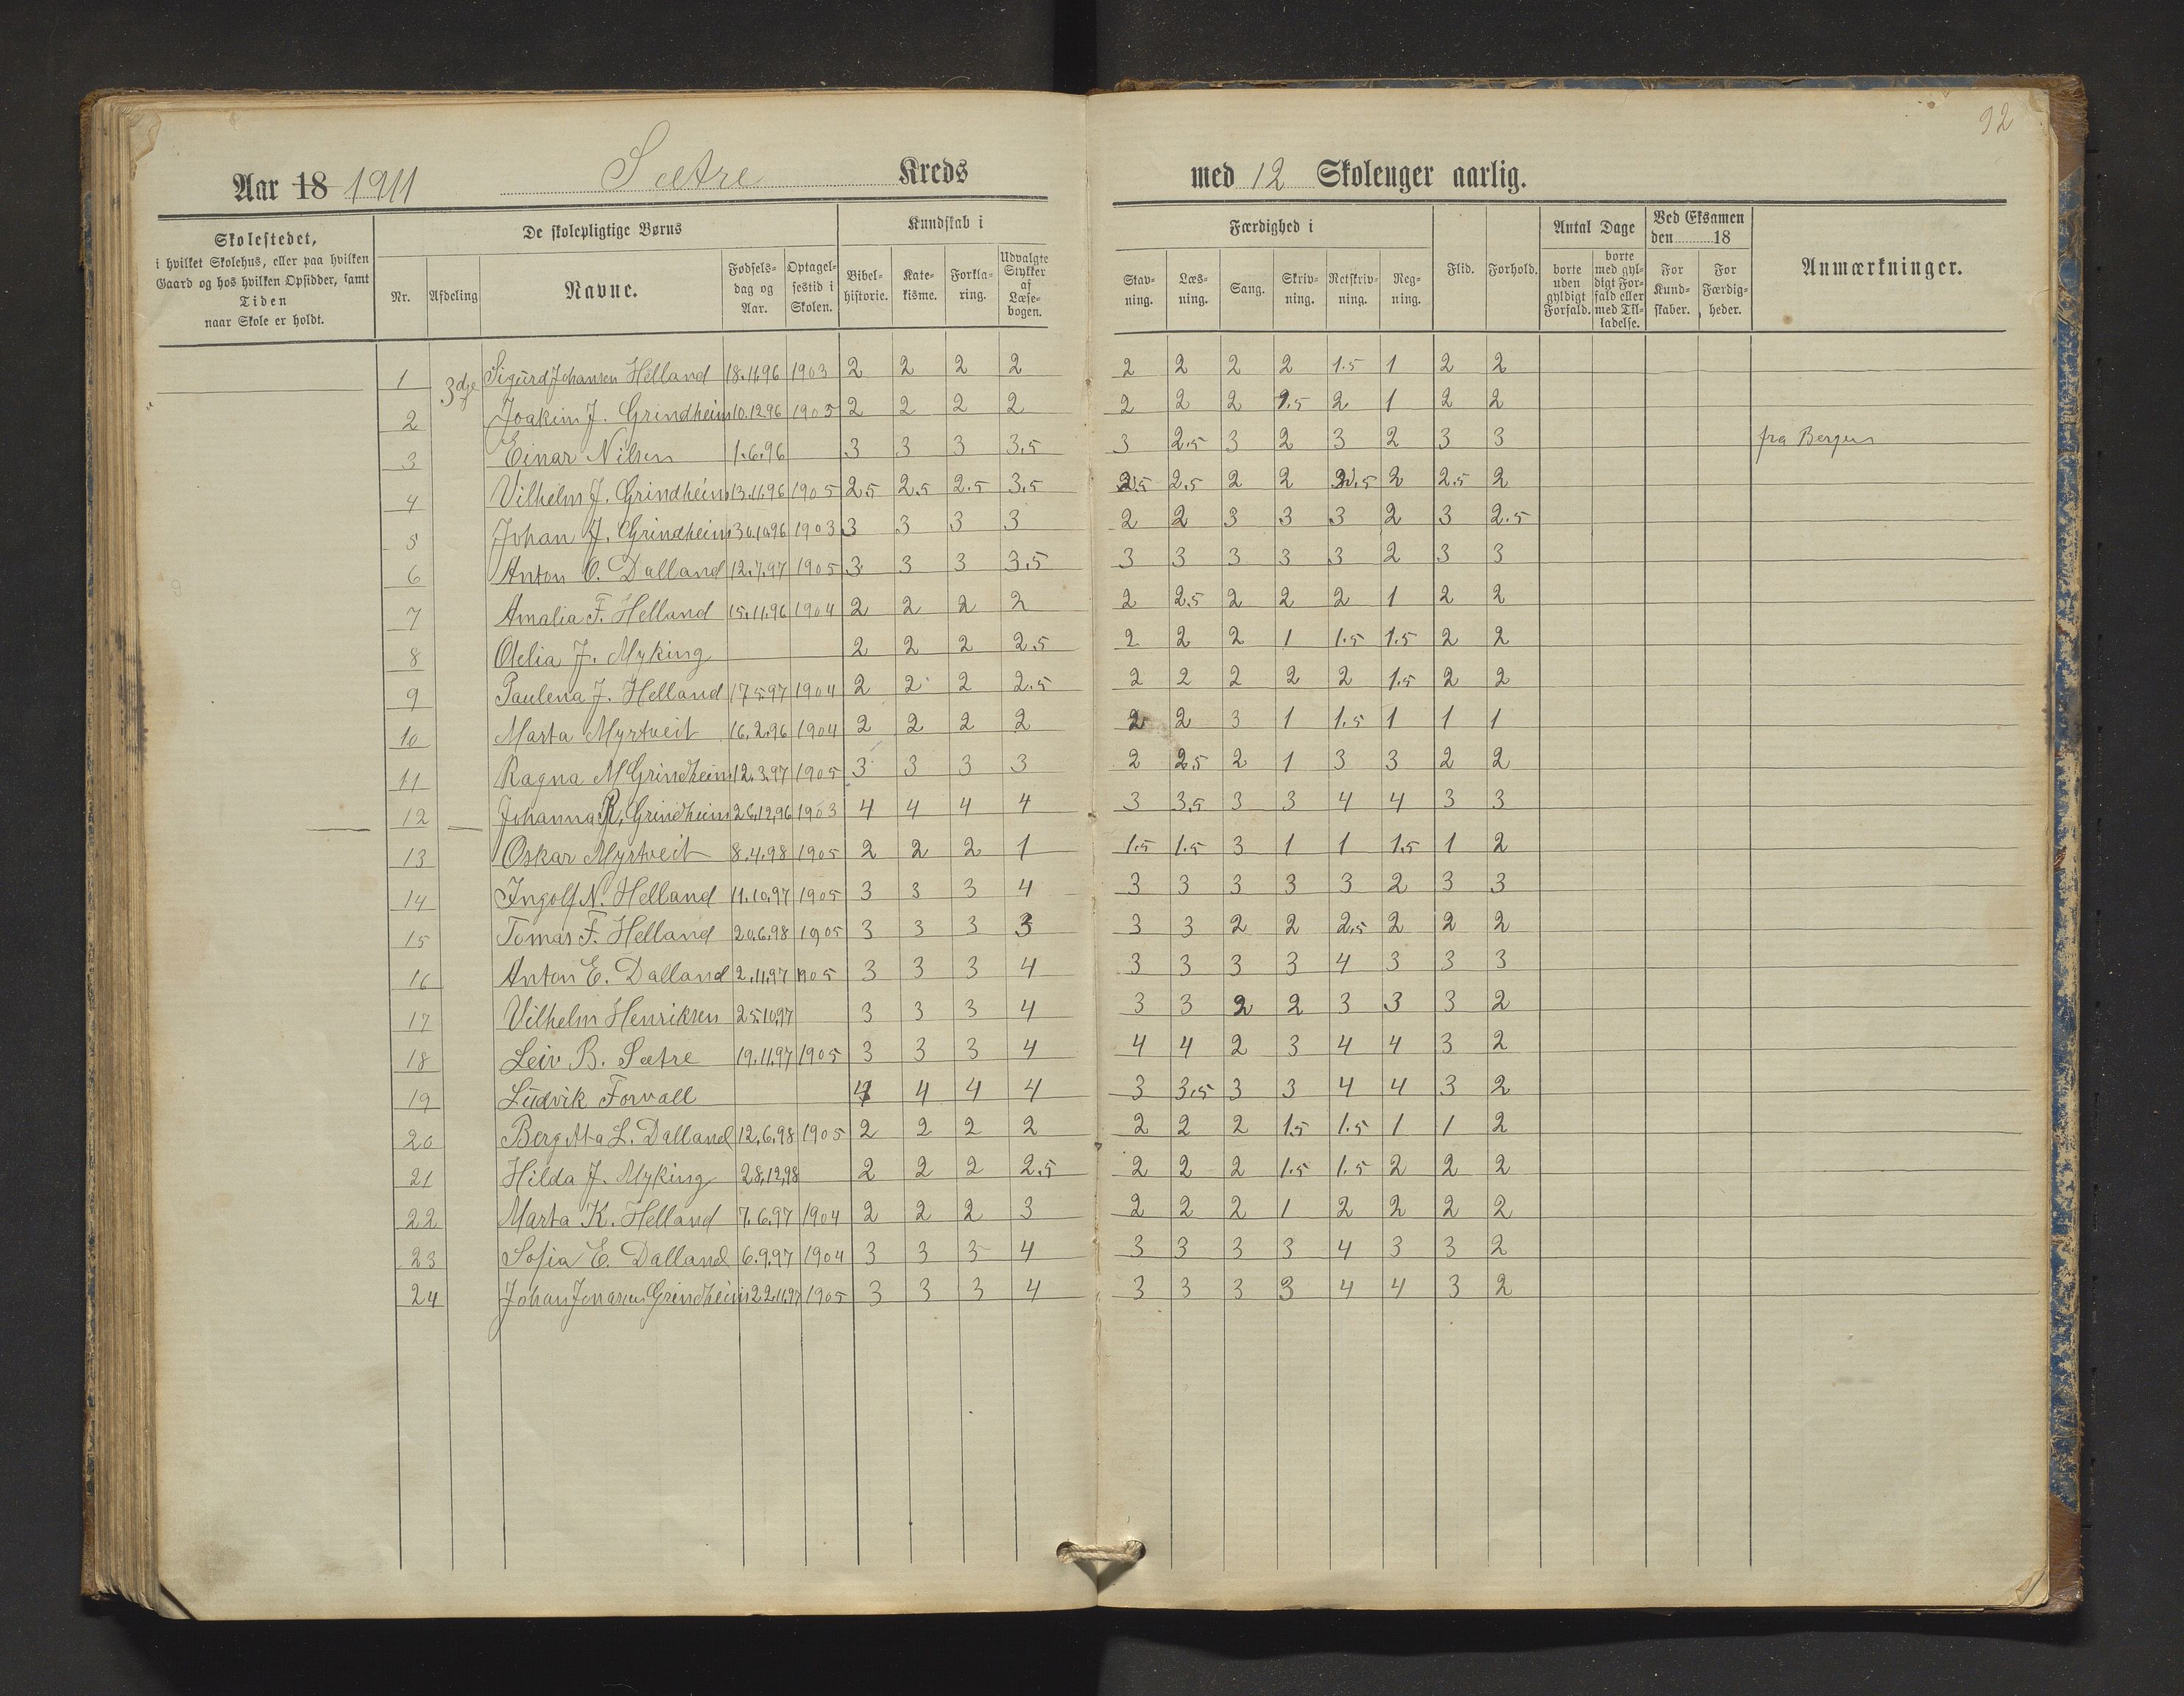 92
Aar 18 1911 Sætre Kreds med 12 Skolenger aarlig.
Skolestedet, i hvilket Skolehus, eller paa hvilken Gaard og hos hvilken Opsidder, samt Tiden naar Skole er holdt.
De skolepligtige Børns
Nr. Afdeling Navne. Fødsels-dag og Aar. Optagel-sestid i Skolen.
Kundskab i
Bibel-historie. Kate-kisme. Forkla-ring. Udvalgte Stykker af Læse-bogen.
Færdighed i
Stav-ning. Læs-ning. Sang. Skriv-ning. Retskriv-ning. Reg-ning. Flid. Forhold.
Antal Dage
borte uden gyldigt Forfald. borte med gyl-digt For-fald eller med Til-ladelse.
Ved Eksamen den 18
For Kund-skaber. For Færdig-heder.
Anmærkninger.
1 3dje Sigurd Johansen Helland 18.11.96 1903 2 2 2 2 2 2 2 2 1.5 1 2 2
2 Joakim J. Grindheim 10.12.96 1905 2 2 2 2 2 2 2 1.5 2 1 2 2
3 Einar Nilsen 1.6.96 3 3 3 3.5 3 2.5 3 2 3 2 3 3 fra Bergen
4 Vilhelm J. Grindheim 13.11.96 1905 2.5 2.5 2.5 3.5 2.5 2.5 2 2 2.5 2 2.5 2
5 Johan J. Grindheim 30.10.96 1903 3 3 3 3 2 2 3 3 3 2 3 2.5
6 Anton O. Dalland 12.7.97 1905 3 3 3 3.5 3 3 3 3 3 2 3 3
7 Amalia F. Helland 15.11.96 1904 2 2 2 2 2 2.5 2 2 2 1 2 2
8 Olelia J. Myking 2 2 2 2.5 2 2 2 1 1.5 1.5 2 2
9 Paulena J. Helland 17.5.97 1904 2 2 2 2.5 2 2 2 2 2 1.5 2 2
10 Marta Myrtveit 16.2.96 1904 2 2 2 2 2 2 3 1 1.5 1 1 1
11 Ragna M Grindheim 12.3.97 1905 3 3 3 3 2 2.5 2 1 3 3 2 2
12 Johanna R. Grindheim 26.12.96 1903 4 4 4 4 3 3.5 3 3 4 4 3 3
13 Oskar Myrtveit 8.4.98 1905 2 2 2 1 1.5 1.5 3 1 1 1.5 1 2
14 Ingolf N. Helland 11.10.97 1905 3 3 3 4 3 3 3 3 3 2 3 3
15 Tomas F. Helland 20.6.98 1905 3 3 3 3 3 3 2 2 2.5 2 2 2
16 Anton E. Dalland 2.11.97 1905 3 3 3 4 3 3 3 3 4 3 3 3
17 Vilhelm Henriksen 25.10.97 3 3 3 4 3 3 2 2 3 3 3 2
18 Leiv B. Sætre 19.11.97 1905 3 3 3 4 4 4 2 3 4 4 3 2
19 Ludvik Forvall 4 4 4 4 3 3.5 3 3 4 4 3 2
20 Bergitta L. Dalland 12.6.98 1905 2 2 2 2 2 2 2 1.5 1.5 1 1 2
21 Hilda J. Myking 28.12.98 2 2 2 2.5 2 2 2 1.5 1.5 2 2 2
22 Marta K. Helland 7.6.97 1904 2 2 2 3 2 2 2 1 2 2 2 2
23 Sofia E. Dalland 6.9.97 1904 3 3 3 4 3 3 3 3 4 3 3 2
24 Johan Jonassen Grindheim 22.11.97 1905 3 3 3 4 3 3 3 3 4 4 3 2